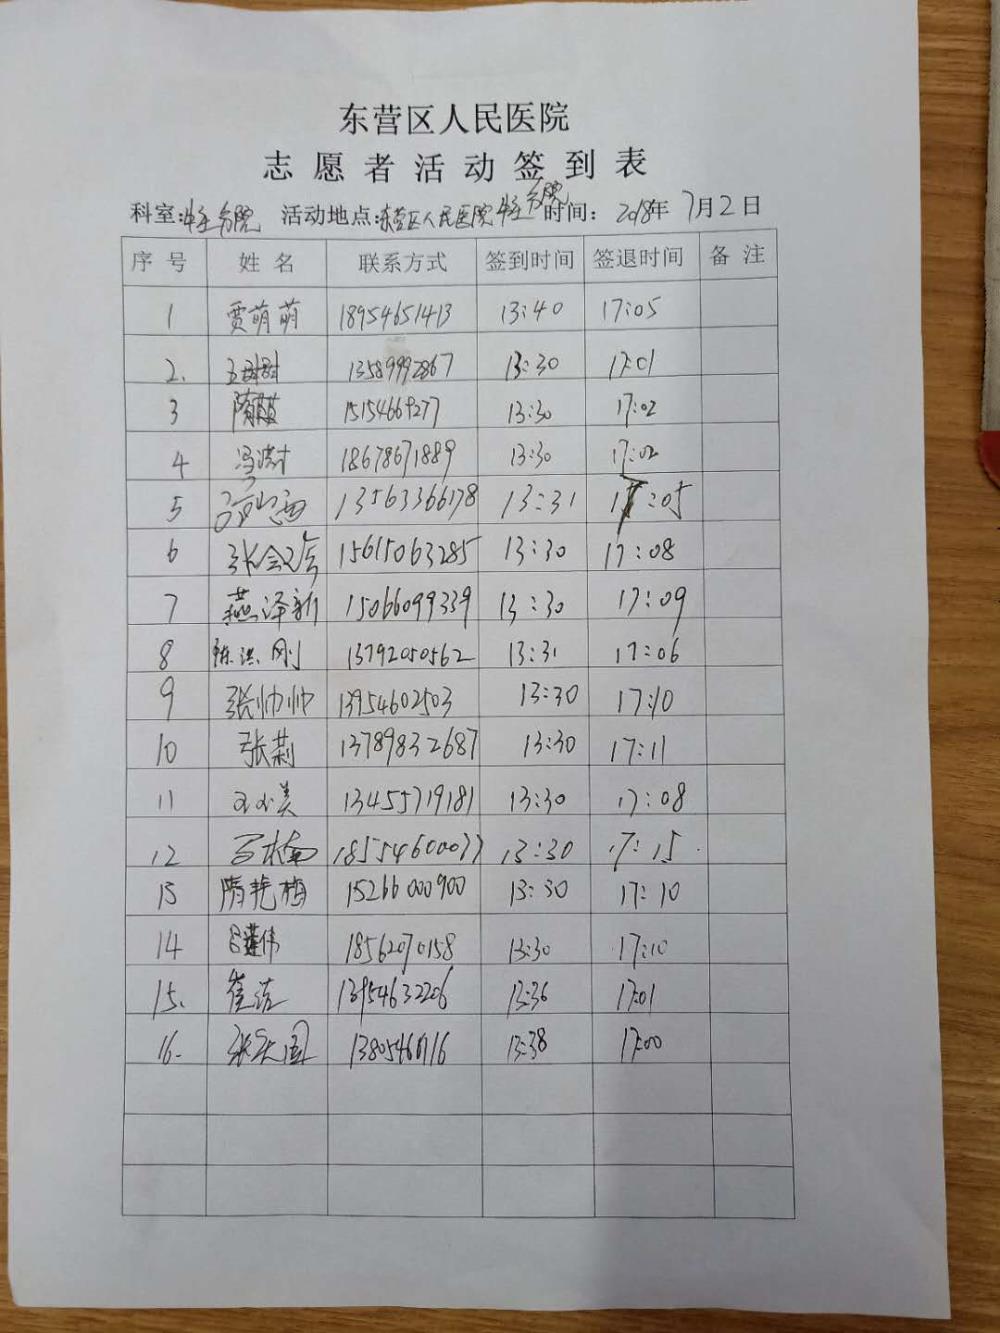 东营区人民医院
志愿者活动签到表
科室: 分院 活动地点:东营区人民医院 分院 时间: 2018年7月2日
序号 姓名 联系方式 签到时间 签退时间 备注
1 贾萌萌 18954651413 13:40 17:05
2. 13589992867 13:30 17:01
3 15154669277 13:30 17:02
4 18678671889 13:30 17:02
5 13563366178 13:31 17:05
6 15615063285 13:30 17:08
7 燕泽新 15066099339 13:30 17:09
8 陈洪刚 13792050562 13:31 17:06
9 张帅帅 13954602503 13:30 17:10
10 张莉 13789832687 13:30 17:11
11 13455719181 13:30 17:08
12 13:30 17:15
13 隋艳梅 15266000900 13:30 17:10
14 18562070158 13:30 17:10
15. 崔洁 13954632206 13:36 17:01
16. 13:38 17:00